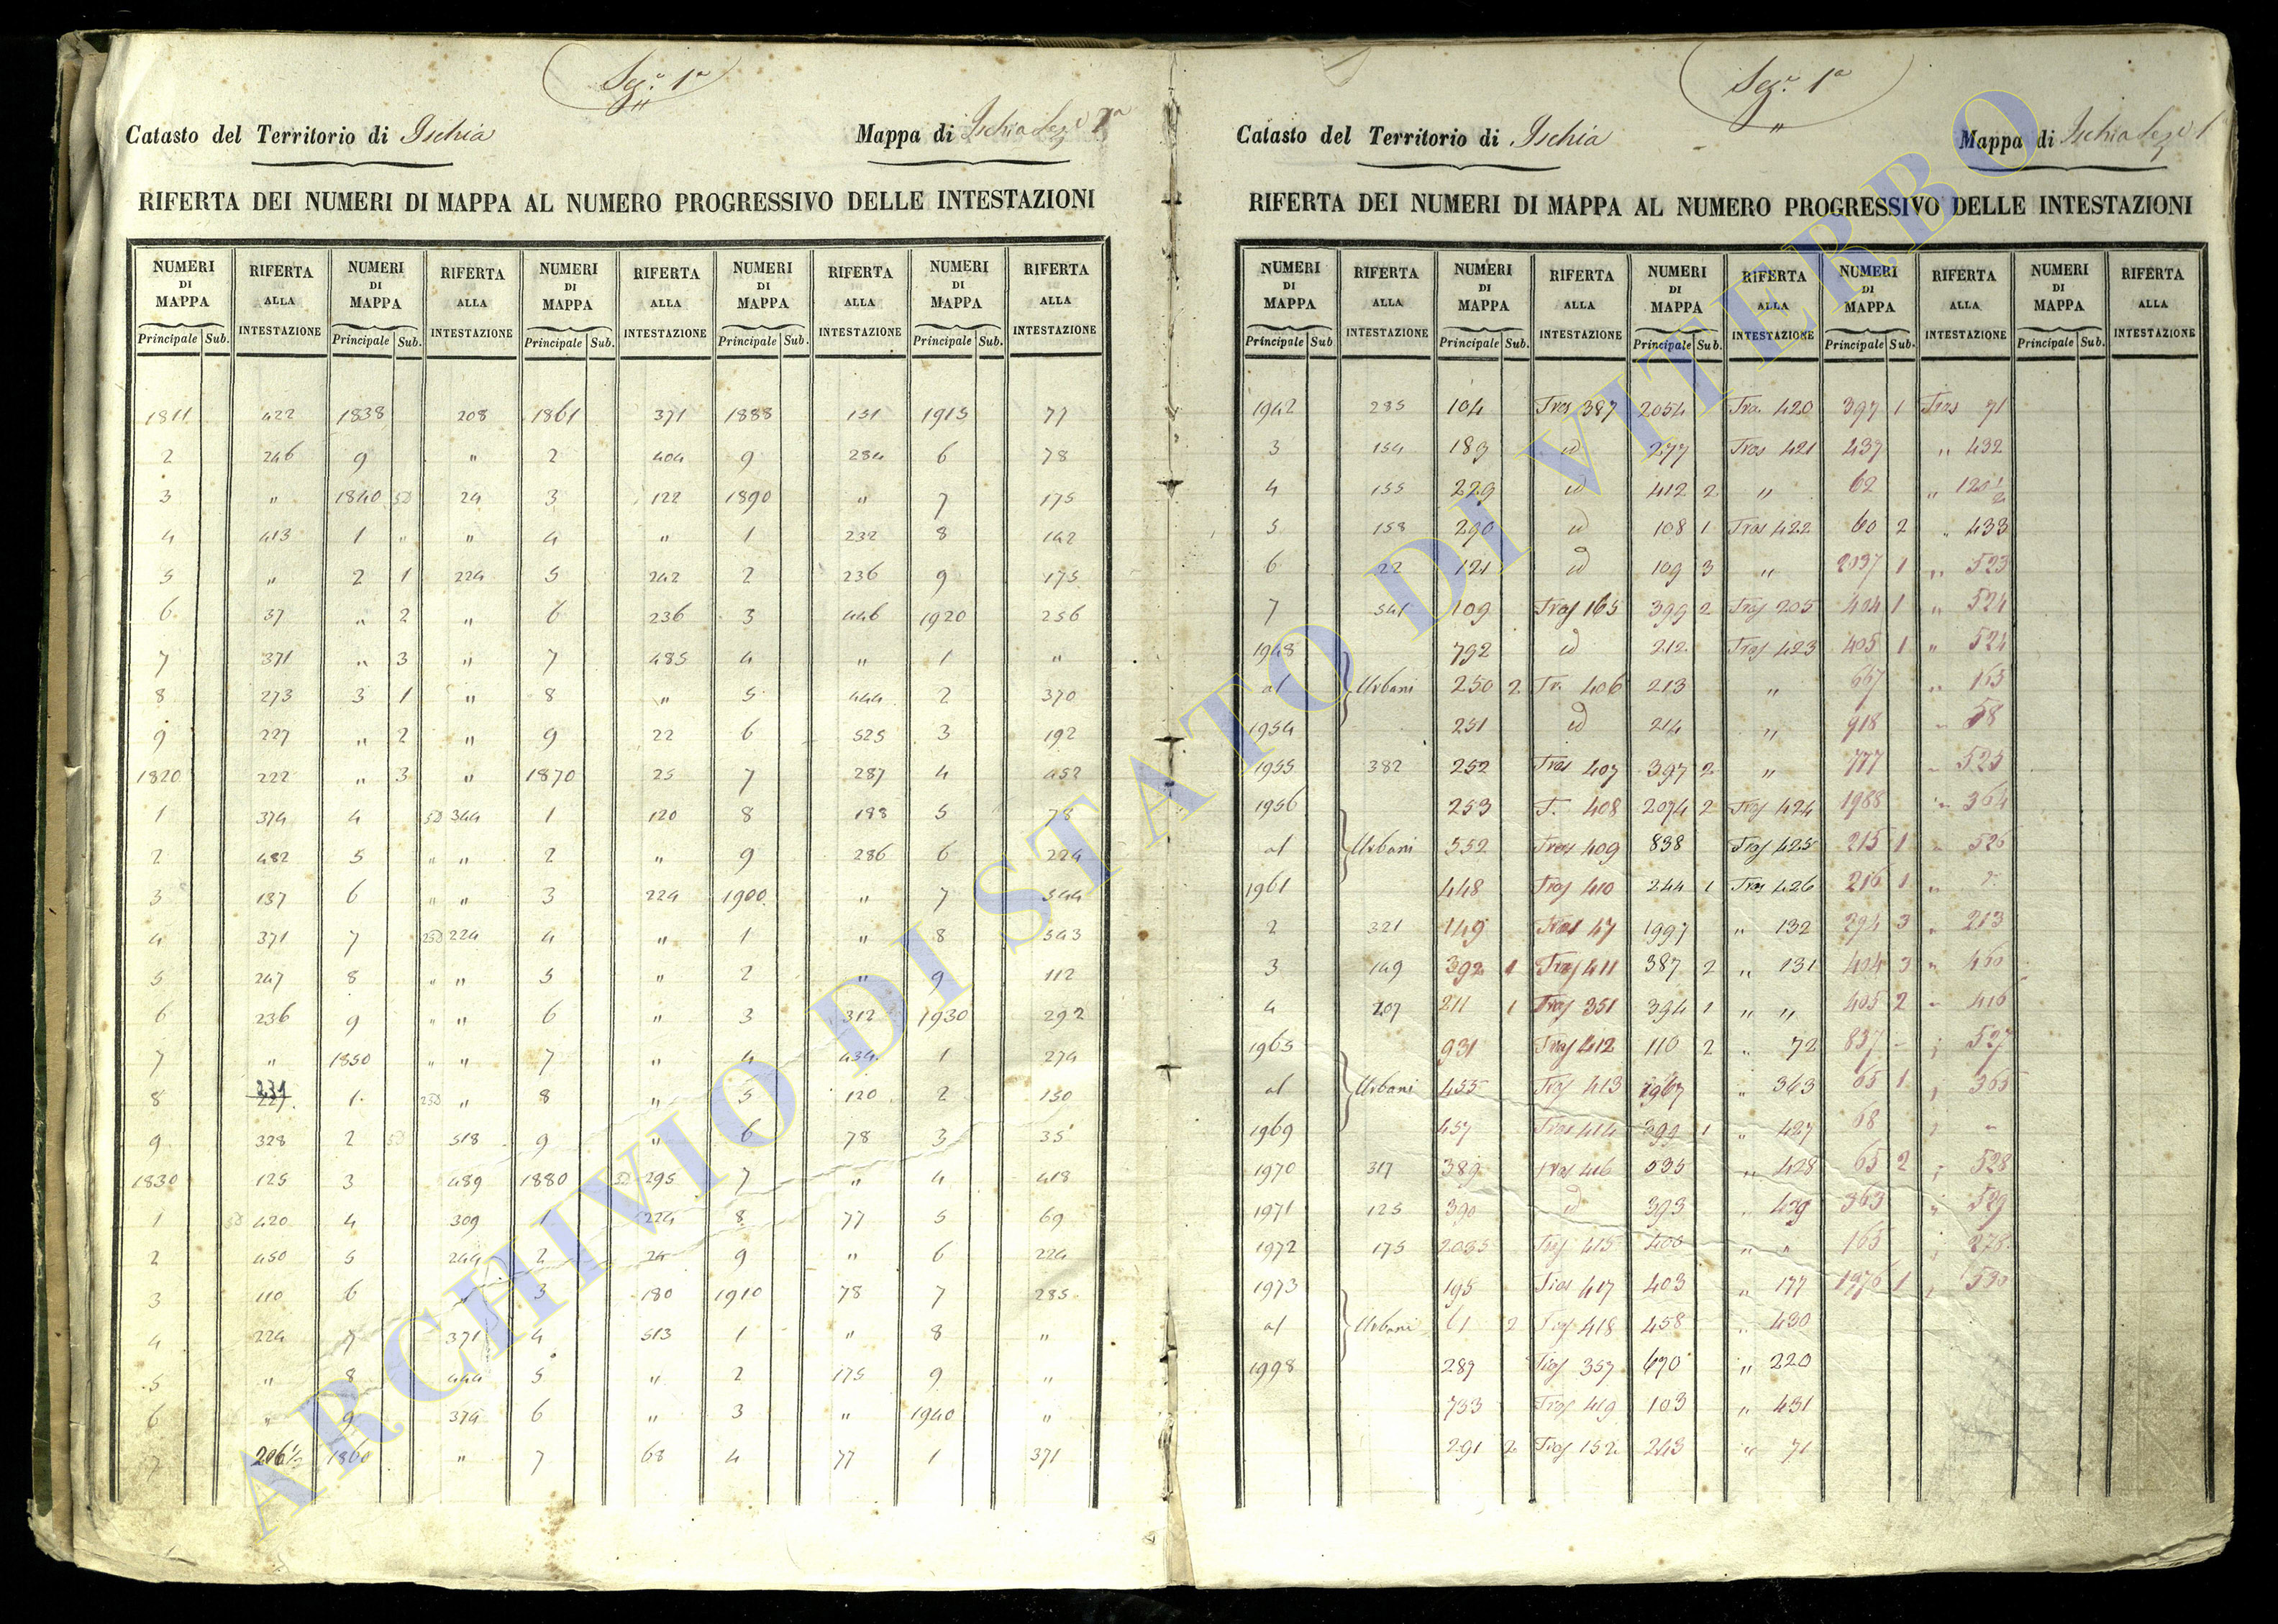 Seze. 1a
Catasto del Territorio di Ischia
Mappa di Ischia
RIFERTA DEI NUMERI DI MAPPA AL NUMERO PROGRESSIVO DELLE INTESTAZIONI
NUMERI DI MAPPA RIFERTA ALLA INTESTAZIONE NUMERI DI MAPPA RIFERTA ALLA INTESTAZIONE NUMERI DI MAPPA RIFERTA ALLA INTESTAZIONE NUMERI DI MAPPA RIFERTA ALLA INTESTAZIONE NUMERI DI MAPPA RIFERTA ALLA INTESTAZIONE
Principale Sub. Principale Sub. Principale Sub. Principale Sub. Principale Sub.
1811 422 1838 208 1861 371 1888 151 1915 77
2 246 9 " 2 404 9 284 6 78
3 " 1840 24 3 122 1890 " 7 175
4 413 1 " " 4 " 1 232 8 142
5 " 2 1 224 5 242 2 236 9 175
6 37 " 2 " 6 236 3 446 1920 256
7 371 " 3 " 7 485 4 " 1 "
8 273 3 1 " 8 " 5 444 2 370
9 227 " 2 " 9 22 6 525 3 192
1820 222 " 3 " 1870 25 7 287 4 452
1 374 4 344 1 120 8 188 5 78
2 482 5 " " 2 " 9 286 6 224
3 137 6 " " 3 224 1900 " 7 544
4 371 7 224 4 " 1 " 8 543
5 247 8 " " 5 " 2 " 9 112
6 236 9 " " 6 " 3 312 1930 292
7 " 1850 " " 7 " 4 434 1 274
8 231 1 " 8 " 5 120 2 150
9 328 2 518 9 " 6 78 3 35
1830 125 3 489 1880 295 7 " 4 418
1 420 4 309 1 224 8 77 5 69
2 450 5 244 2 24 9 " 6 224
3 110 6 " 3 180 1910 78 7 285
4 224 7 371 4 513 1 " 8 "
5 " 8 444 5 " 2 175 9 "
6 " 9 374 6 " 3 " 1940 "
7 206 1/2 1860 " 7 68 4 77 1 371
Catasto del Territorio di Ischia
Mappa di Ischia
RIFERTA DEI NUMERI DI MAPPA AL NUMERO PROGRESSIVO DELLE INTESTAZIONI
NUMERI DI MAPPA RIFERTA ALLA INTESTAZIONE NUMERI DI MAPPA RIFERTA ALLA INTESTAZIONE NUMERI DI MAPPA RIFERTA ALLA INTESTAZIONE NUMERI DI MAPPA RIFERTA ALLA INTESTAZIONE NUMERI DI MAPPA RIFERTA ALLA INTESTAZIONE
Principale Sub Principale Sub. Principale Sub. Principale Sub. Principale Sub.
1942 285 104 Tras 387 2054 Tra. 420 397 1 Tras 71
3 154 189 id 277 Tras 421 437 " 432
4 155 229 id 412 2 " 62 " 120 1/2
5 158 290 id 108 1 Tras 422 60 2 " 433
6 22 121 id 109 3 " 2037 1 " 523
7 541 109 Tras 165 399 2 Tras 205 424 1 " 524
1948 792 id 212 Tras 423 405 1 " 524
al Urbani 250 2 Tr. 406 213 " 667 " 165
1954 251 id 214 " 918 " 58
1955 382 252 Tras 407 397 2 " 777 " 525
1956 253 T. 408 2074 2 Tras 424 1988 " 364
al Urbani 552 Tras 409 838 Tras 425 215 1 " 526
1961 448 Tras 410 244 1 Tras 426 216 1 "
2 321 149 Tras 47 1997 " 132 294 3 " 213
3 149 392 1 Tras 411 387 2 " 131 404 3 " 460
4 207 211 1 Tras 351 394 1 " " 405 2 " 416
1965 931 Tras 412 110 2 " 72 837 " 527
al Urbani 455 Tras 413 1967 " 363 65 1 " 365
1969 457 Tras 414 399 1 " 427 68 " "
1970 317 389 Tras 416 535 " 428 65 2 " 528
1971 125 390 id 393 " 429 363 " 529
1972 175 2035 Tras 415 405 " " 165 " 278
1973 195 Tras 417 403 " 177 1976 1 " 530
al Urbani 61 2 Tras 418 458 " 430
1998 287 Tras 357 670 " 220
733 Tras 419 103 " 431
291 2 Tras 152 243 " 71
ARCHIVIO DI STATO DI VITERBO